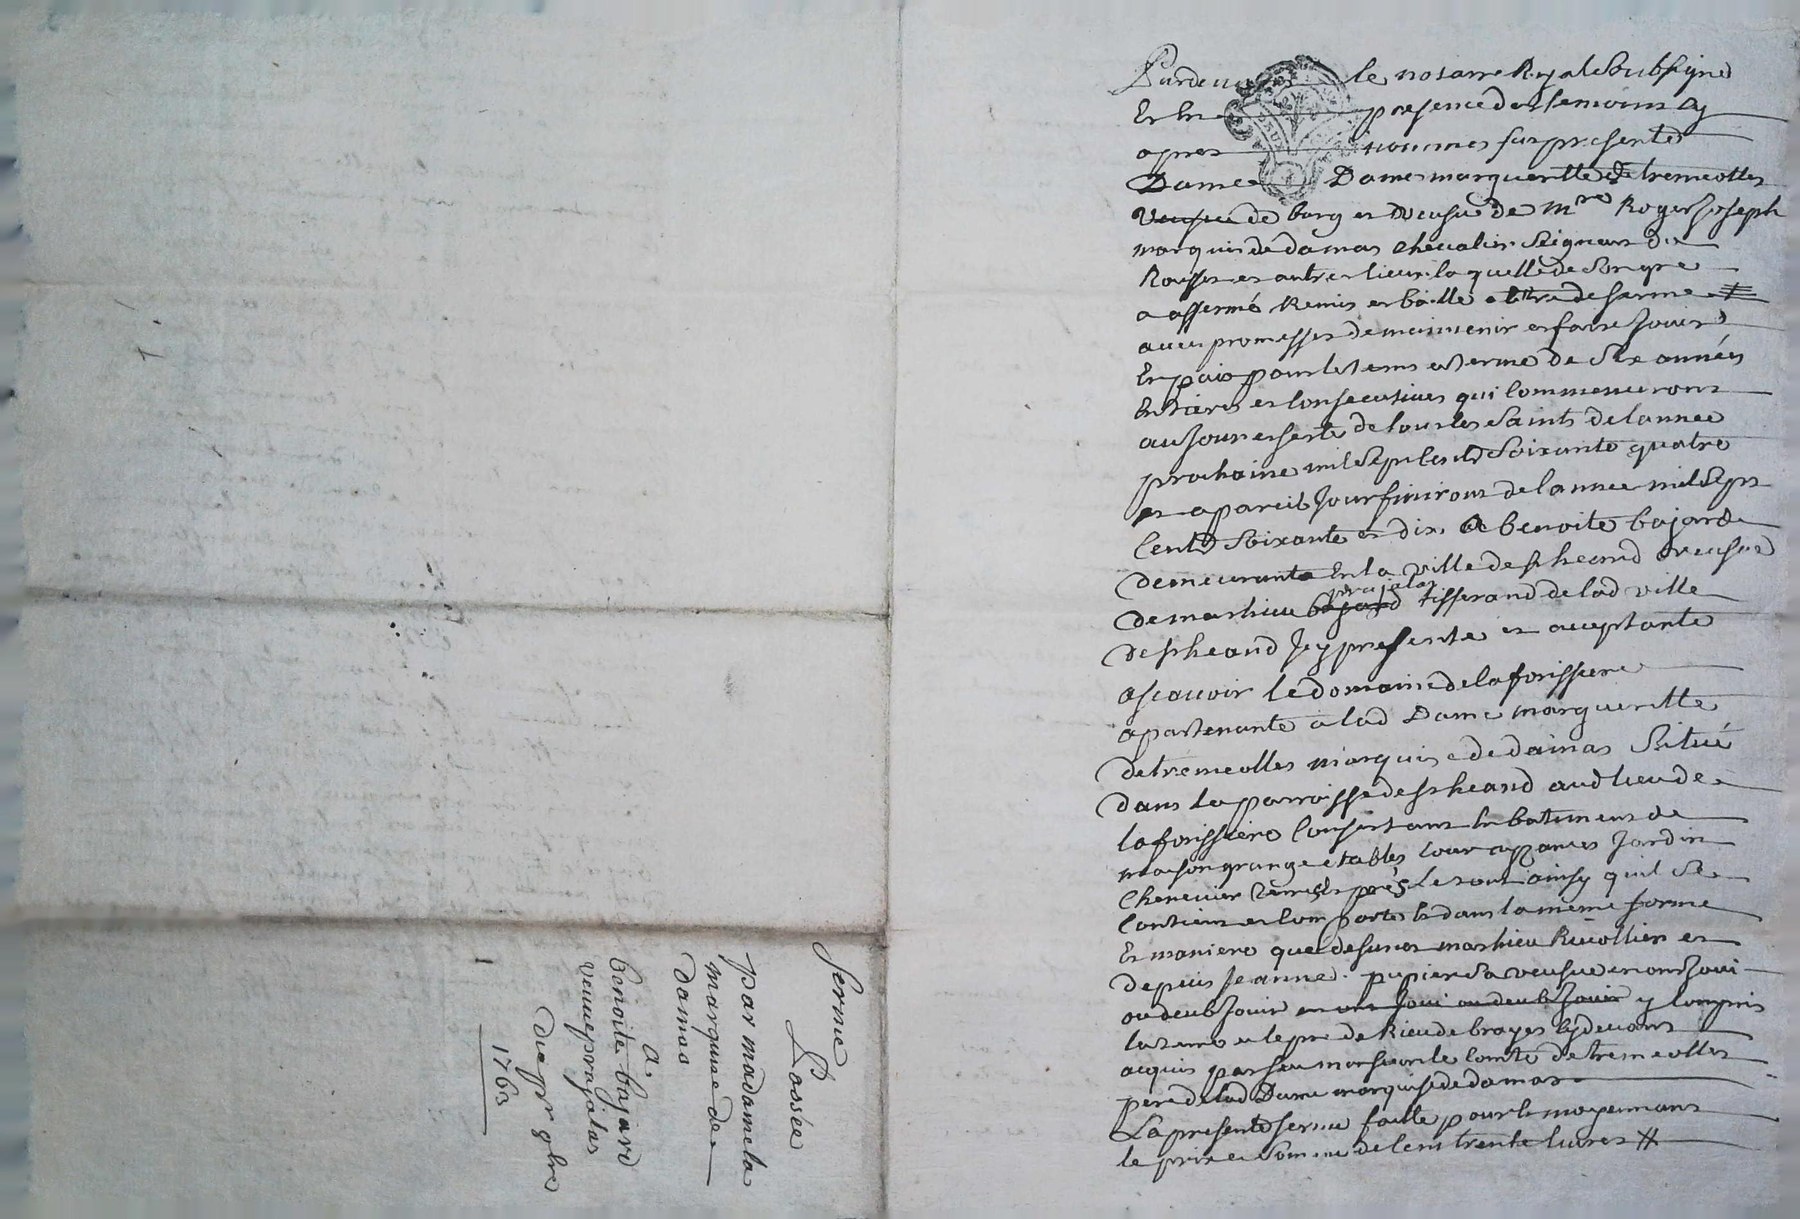 Pardeva le notaire Royal Soubsigné
Et en presence des temoins cy
apres nommes fut presente
Dame Dame margueritte de tremeolles
veufue de barg et veufue de Mre Roger Joseph
marquis de damas chevalier Seigneur du
Rousset et autres lieux laquelle de Son gré
a affermé Remis et baille a titre de ferme
avec promesses de maintenir et faire Jouir
En paix pour le tems et terme de Six années
Entieres et consecutives qui commenceront
au Jour et feste de tous les Saints de lannee
prochaine mil Sept Cents Soixante quatre
et a pareil Jour finiront de lannee mil Sept
Cents Soixante et dix. A benoite bajard
demeurante En la ville de st heand veufue
de mathieu bajard prajalas tisserand de lad ville
de st heand Icy presente et acceptante
ascavoir le domaine de la forissiere
apartenante a lad Dame margueritte
de tremeolles marquise de damas Scitué
dans la parroisse de st heand audt lieu de
la forissiere Consistant En batiments de
maison grange etables cour aizances Jardin
Chenevier terres prés le tout ainsy quil Se
Contient et Comporte et dans la meme forme
Et maniere que defunct mathieu Rivollier et
depuis Jeanne pupier Sa veufue en ont Joui
ou deub Jouir en ont Joui ou deub Jouir y compris
la terre et le pre de Rieu de brayes cy devant
acquis par feu monsieur le Comte de tremeolles
pere de lad Dame marquise de damas
La presente ferme faitte pour et moyennant
le prix et Somme de Cent trente livres
ferme
Passée
par madame la
marquise de
damas
a
benoite bajard
veuve prajalas
Du 9bre
1763